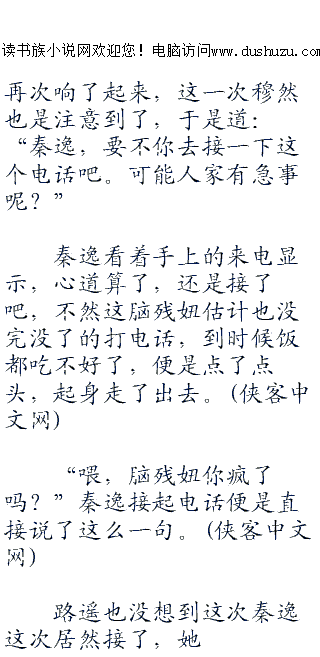 读书族小说网欢迎您！电脑访问www.dushuzu.com
再次响了起来，这一次穆然
也是注意到了，于是道：
“秦逸，要不你去接一下这
个电话吧。可能人家有急事
呢？”
秦逸看着手上的来电显
示，心道算了，还是接了
吧，不然这脑残妞估计也没
完没了的打电话，到时候饭
都吃不好了，便是点了点
头，起身走了出去。(侠客中
文网)
“喂，脑残妞你疯了
吗？”秦逸接起电话便是直
接说了这么一句。(侠客中文
网)
路遥也没想到这次秦逸
这次居然接了，她